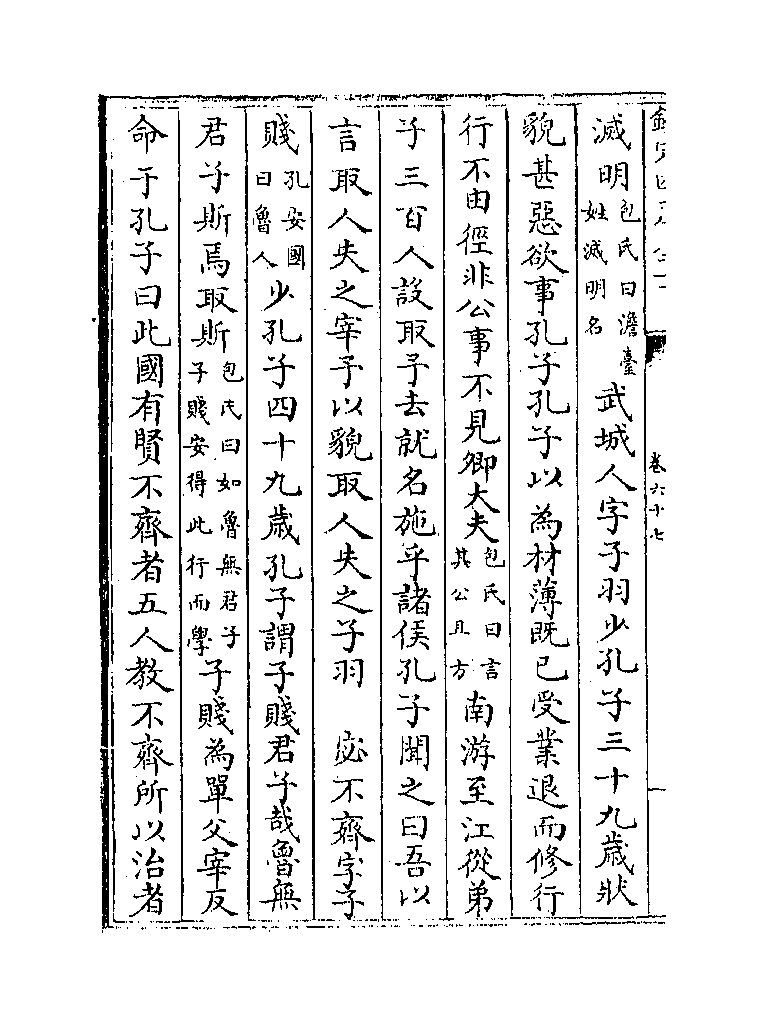 滅明包氏曰澹臺姓滅明名武城人字子羽少孔子三十九歲狀
貌甚惡欲事孔子孔子以為材薄既已受業退而修行
行不由徑非公事不見卿大夫包氏曰言其公且方南游至江從弟
子三百人設取予去就名施乎諸侯孔子聞之曰吾以
言取人失之宰予以貌取人失之子羽 宓不齊字子
賤孔安國曰魯人少孔子四十九歲孔子謂子賤君子哉魯無
君子斯焉取斯包氏曰如魯無君子子賤安得此行而學子賤為單父宰反
命于孔子曰此國有賢不齊者五人教不齊所以治者
卷六十七